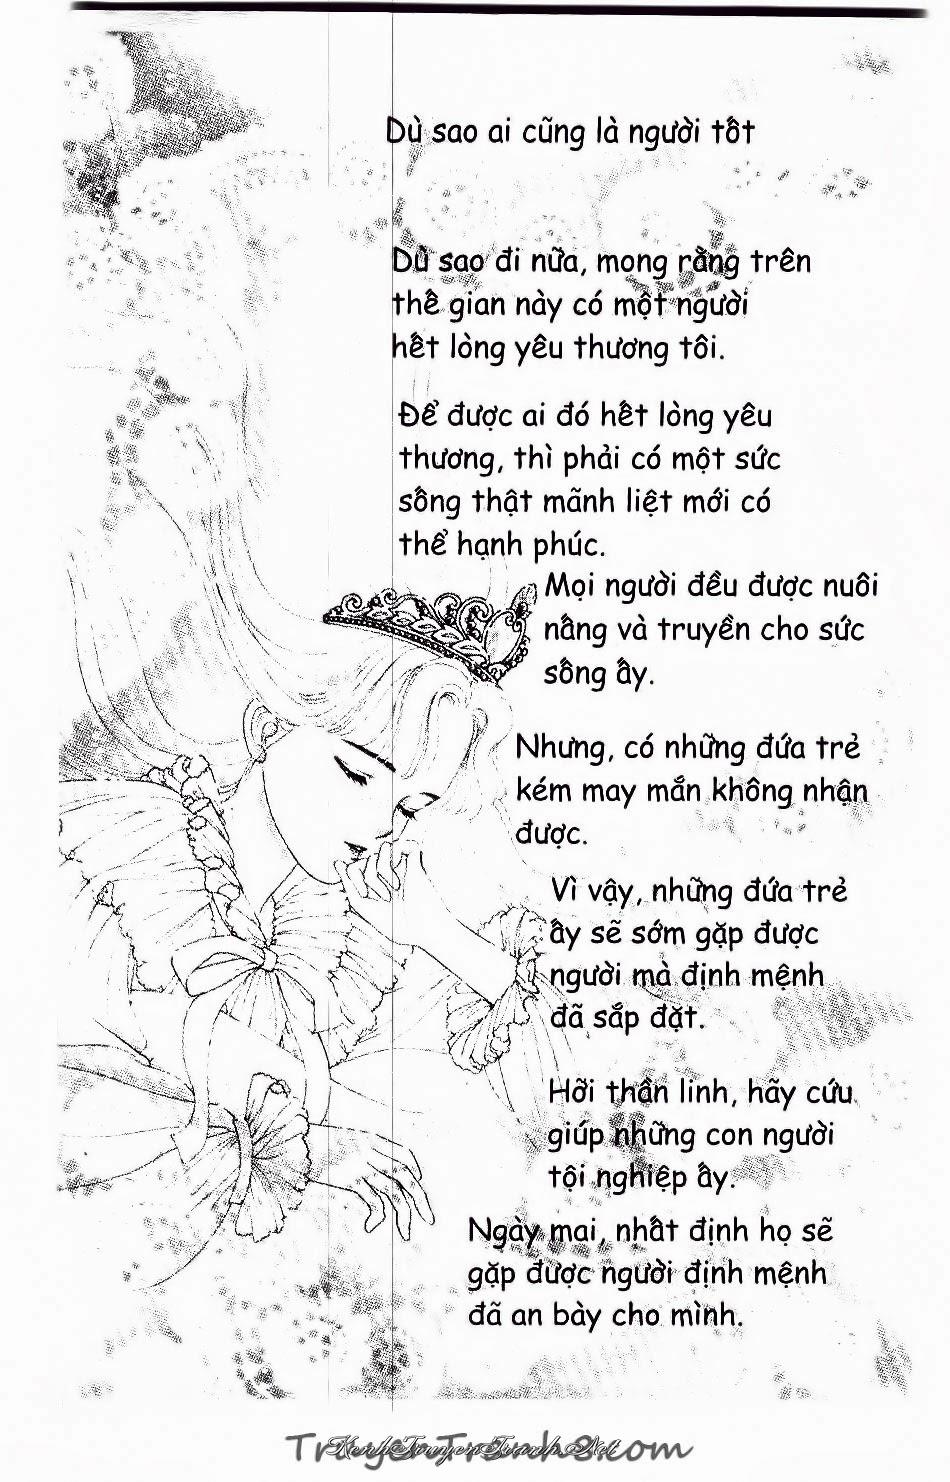 Dù sao ai cũng là người tốt
Dù sao đi nữa, mong rằng trên
thế gian này có một người
hết lòng yêu thương tôi.
Để được ai đó hết lòng yêu
thương, thì phải có một sức
sống thật mãnh liệt mới có
thể hạnh phúc.
Mọi người đều được nuôi
nấng và truyền cho sức
sống ấy.
Nhưng, có những đứa trẻ
kém may mắn không nhận
được.
Vì vậy, những đứa trẻ
ấy sẽ sớm gặp được
người mà định mệnh
đã sắp đặt.
Hỡi thần linh, hãy cứu
giúp những con người
tội nghiệp ấy.
Ngày mai, nhất định họ sẽ
gặp được người định mệnh
đã an bày cho mình.